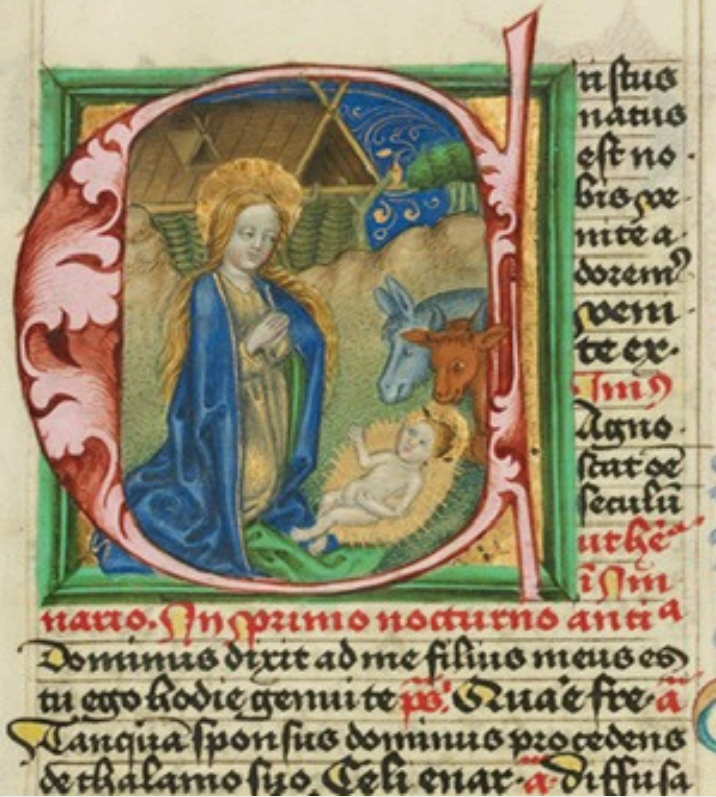 C
ristus
natus
est no
bis ve
nite a
dorem⁹
veni
te ex.
Im⁹
Agno
scat oē
seculū
ut hē
ī Im
nario. In primo nocturno anti a
Dominus dixit ad me filius meus es
tu ego hodie genui te ps. Quare fre. a
Tanquā sponsus dominus procedens
de thalamo suo. Celi enar. a. Diffusa